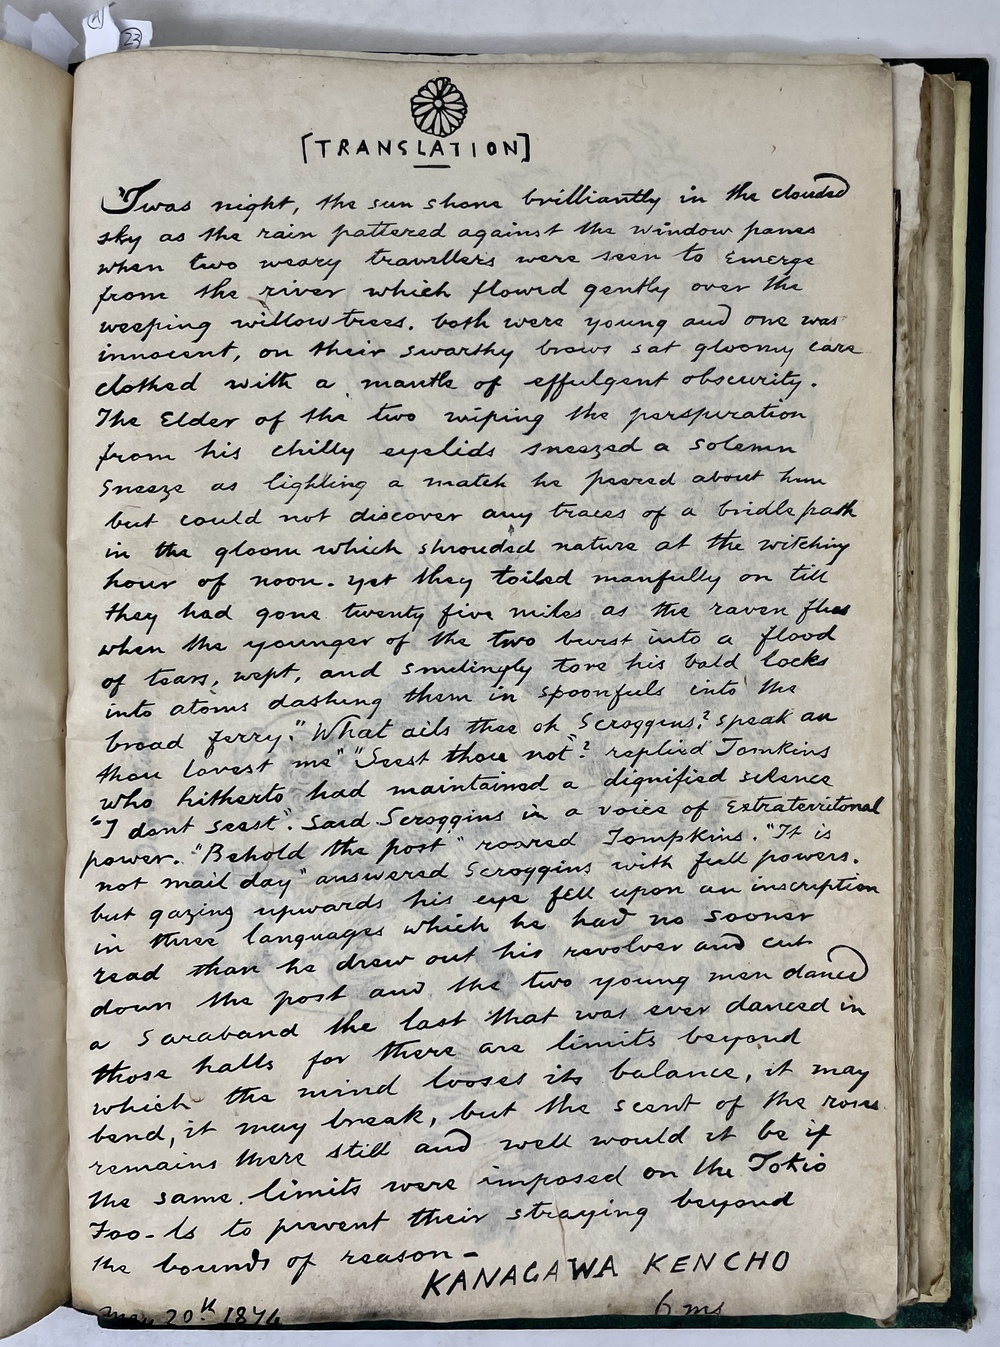 A
23
[TRANSLATION]
'Twas night, the sun shone brilliantly in the clouded
sky as the rain pattered against the window panes
when two weary travellers were seen to Emerge
from the river which flowed gently over the
weeping willow trees. both were young and one was
innocent, on their swarthy brows sat gloomy care
clothed with a mantle of effulgent obscurity.
The Elder of the two wiping the perspiration
from his chilly eyelids sneezed a solemn
sneeze as lighting a match he peered about him
but could not discover any traces of a bridle path
in the gloom which shrouded nature at the witching
hour of noon. yet they toiled manfully on till
they had gone twenty five miles as the raven flies
when the younger of the two burst into a flood
of tears, wept, and smilingly tore his bald locks
into atoms dashing them in spoonfuls into the
broad ferry. "What ails thee oh Scroggins? speak an
thou lovest me" "Seest thou not"? replied Tomkins
who hitherto had maintained a dignified silence
"I dont seest". Said Scroggins in a voice of Extraterritorial
power. "Behold the post" roared Tompkins. "It is
not mail day" answered Scroggins with full powers.
but gazing upwards his eye fell upon an inscription
in three languages which he had no sooner
read than he drew out his revolver and cut
down the post and the two young men danced
a Saraband the last that was ever danced in
those halls for there are limits beyond
which the mind looses its balance, it may
bend, it may break, but the scent of the roses
remains there still and well would it be if
the same limits were imposed on the Tokio
Foo-ls to prevent their straying beyond
the bounds of reason -
KANAGAWA KENCHO
May 20th 1874